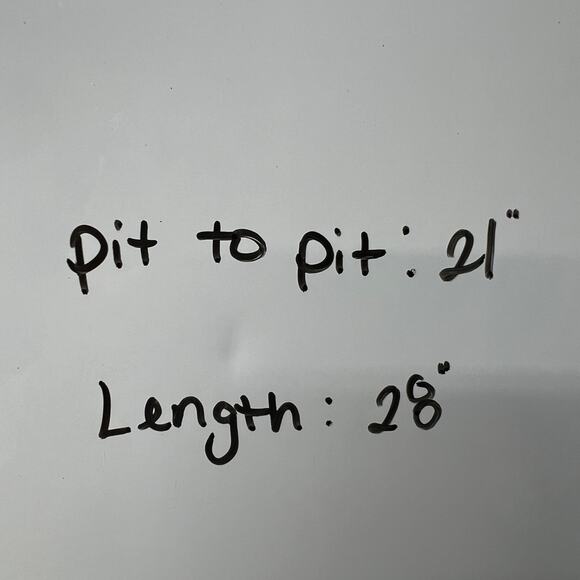 pit to pit: 21"
Length: 28"